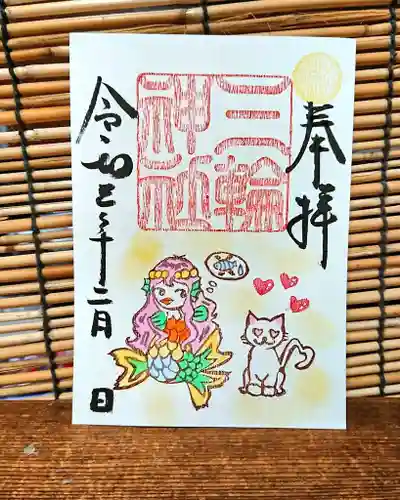 奉拝
三輪
神社
令和三年二月 日